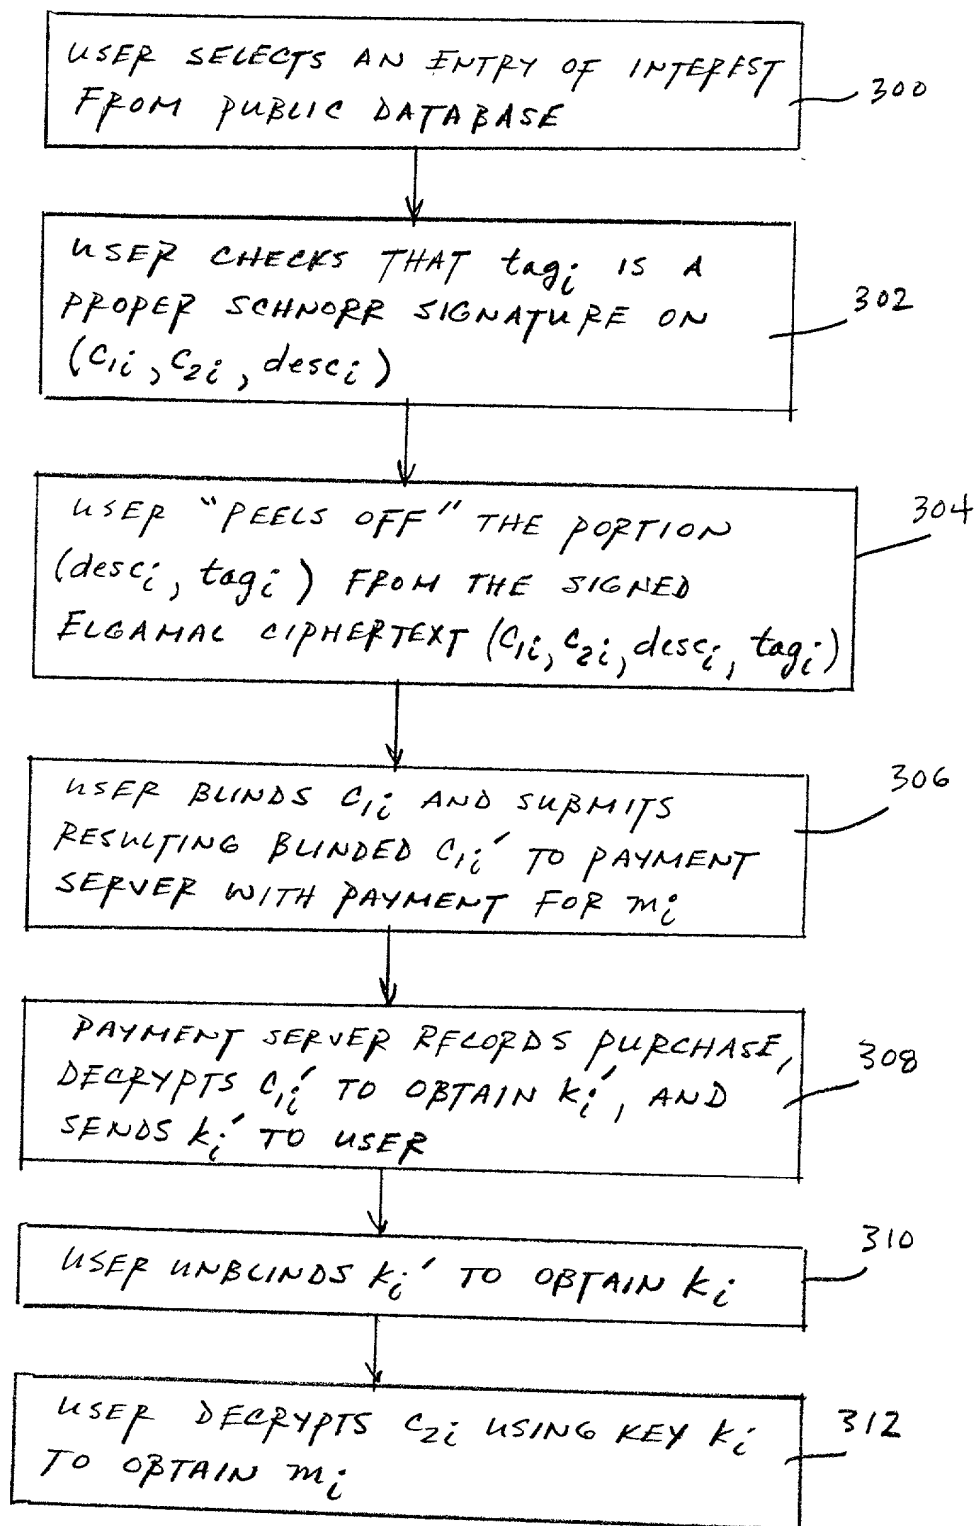 USER SELECTS AN ENTRY OF INTEREST
FROM PUBLIC DATABASE
300
USER CHECKS THAT tagᵢ IS A
PROPER SCHNORR SIGNATURE ON
(C₁ᵢ, C₂ᵢ, descᵢ)
302
USER "PEELS OFF" THE PORTION
(descᵢ, tagᵢ) FROM THE SIGNED
ELGAMAL CIPHERTEXT (C₁ᵢ, C₂ᵢ, descᵢ, tagᵢ)
304
USER BLINDS C₁ᵢ AND SUBMITS
RESULTING BLINDED C₁ᵢ′ TO PAYMENT
SERVER WITH PAYMENT FOR mᵢ
306
PAYMENT SERVER RECORDS PURCHASE,
DECRYPTS C₁ᵢ′ TO OBTAIN kᵢ′, AND
SENDS kᵢ′ TO USER
308
USER UNBLINDS kᵢ′ TO OBTAIN kᵢ
310
USER DECRYPTS C₂ᵢ USING KEY kᵢ
TO OBTAIN mᵢ
312